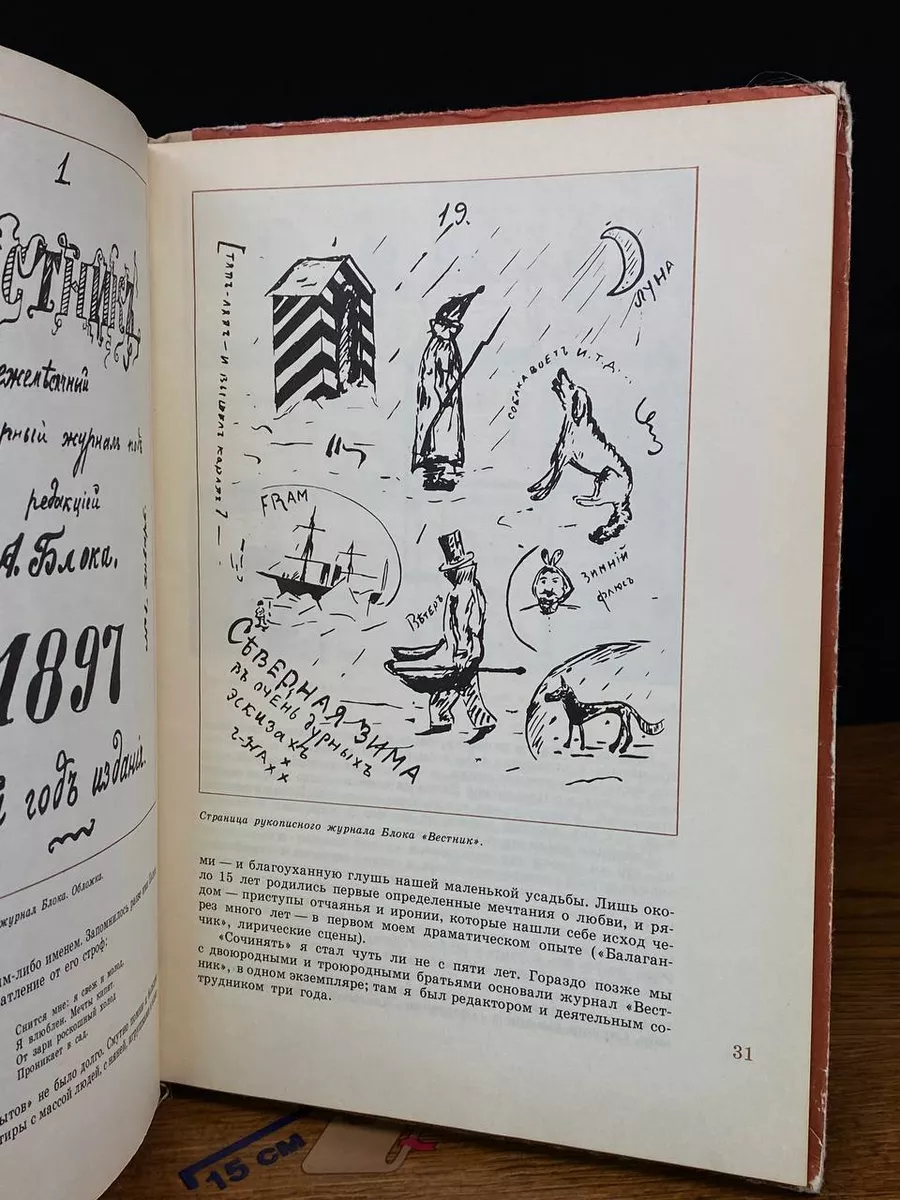 1.
ежемѣсячный
рный журналъ подъ
редакціей
А. Блока.
1897
годъ изданія.
журнал Блока. Обложка.
м-либо именем. Запомнилось
атление от его строф:
Снится мне: я свеж и молод,
Я влюблен. Мечты кипят.
От зари роскошный холод
Проникает в сад.
ытов» не было долго. Смутно помню я
тиры с массой людей, с няней, игрушками
19.
ЛУНА
СОБАКА ВОЕТЪ И.Т.Д...
FRAM
ЗИМНІЙ
ФЛЮСЪ
ВѢТЕРЪ
СѢВЕРНАЯ ЗИМА
ВЪ ОЧЕНЬ ДУРНЫХЪ
ЭСКИЗАХЪ
Г-НА
Страница рукописного журнала Блока «Вестник».
ми — и благоуханную глушь нашей маленькой усадьбы. Лишь око-
ло 15 лет родились первые определенные мечтания о любви, и ря-
дом — приступы отчаянья и иронии, которые нашли себе исход че-
рез много лет — в первом моем драматическом опыте («Балаган-
чик», лирические сцены).
«Сочинять» я стал чуть ли не с пяти лет. Гораздо позже мы
с двоюродными и троюродными братьями основали журнал «Вест-
ник», в одном экземпляре; там я был редактором и деятельным со-
трудником три года.
31
15 СМ